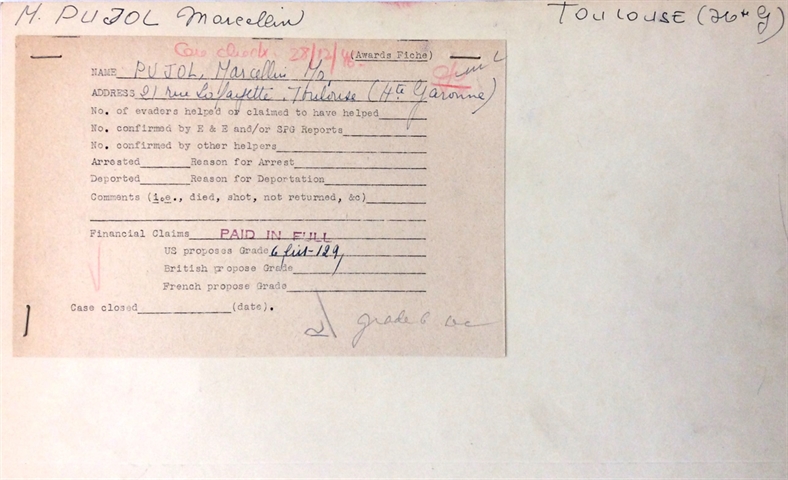 M. PUJOL Marcellin TOULOUSE (Hte G)
Case check. 28/12/46. (Awards Fiche)
NAME PUJOL, Marcellin Mr.
ADDRESS 21 rue Lafayette. Toulouse (Hte Garonne)
No. of evaders helped or claimed to have helped
No. confirmed by E & E and/or SPG Reports
No. confirmed by other helpers
Arrested Reason for Arrest
Deported Reason for Deportation
Comments (i.e., died, shot, not returned, &c)
Financial Claims PAID IN FULL
US proposes Grade 6 list-129
British propose Grade
French propose Grade
Case closed (date).
grade 6